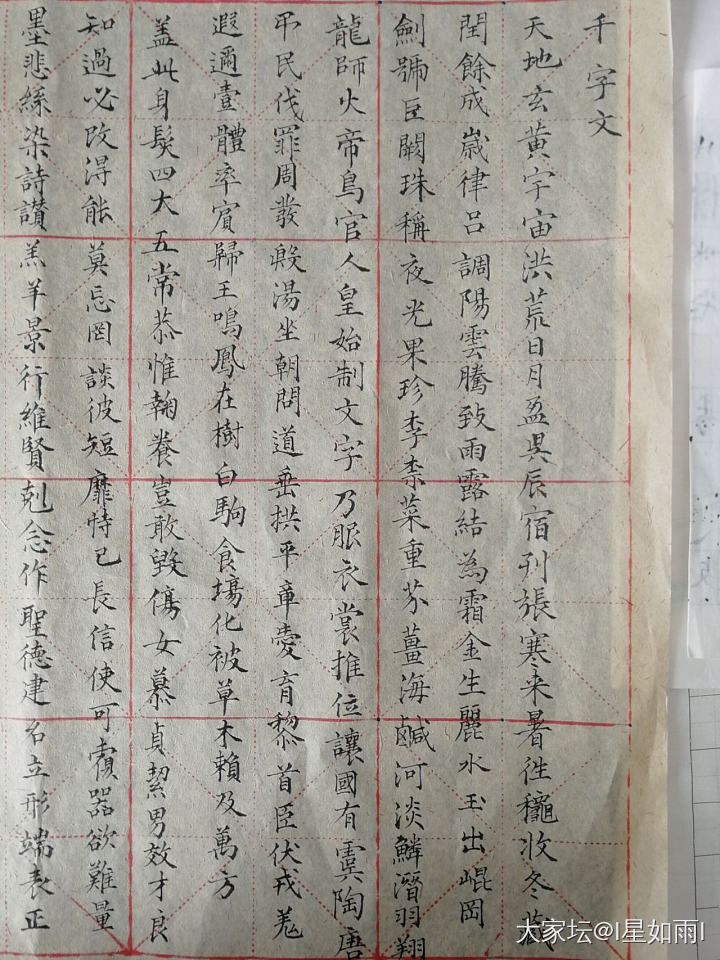 千字文
天地玄黃宇宙洪荒日月盈昃辰宿列張寒来暑徃穐收冬藏
閏餘成嵗律呂調陽雲騰致雨露結為霜金生麗水玉出崐岡
劍號巨闕珠稱夜光果珍李柰菜重芥薑海鹹河淡鱗潛羽翔
龍師火帝鳥官人皇始制文字乃服衣裳推位讓國有虞陶唐
吊民伐罪周發殷湯坐朝問道垂拱平章愛育黎首臣伏戎羌
遐邇壹體率賓歸王鳴鳳在樹白駒食場化被草木賴及萬方
盖此身髮四大五常恭惟鞠養豈敢毀傷女慕貞絜男效才良
知過必改得能莫忘罔談彼短靡恃己長信使可覆器欲難量
墨悲絲染詩讚羔羊景行維賢剋念作聖德建名立形端表正
大家坛@l星如雨l